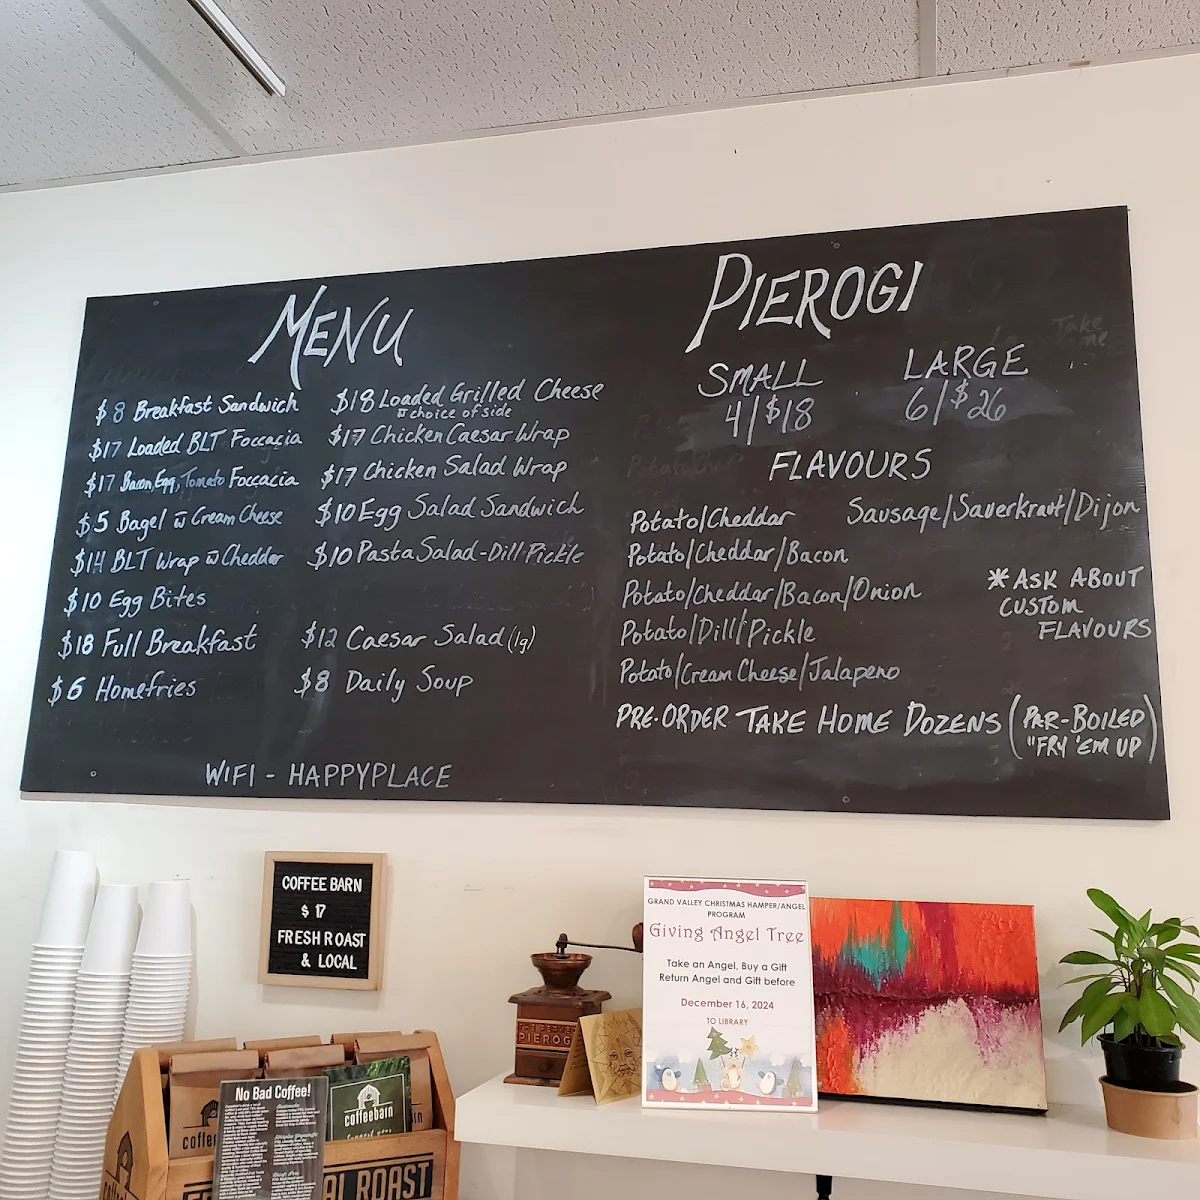 MENU
$8 Breakfast Sandwich
$17 Loaded BLT Foccacia
$17 Bacon, Egg, Tomato Foccacia
$5 Bagel w̄ Cream Cheese
$14 BLT Wrap w̄ Cheddar
$10 Egg Bites
$18 Full Breakfast
$6 Homefries
$18 Loaded Grilled Cheese
w̄ choice of side
$17 Chicken Caesar Wrap
$17 Chicken Salad Wrap
$10 Egg Salad Sandwich
$10 Pasta Salad - Dill Pickle
$12 Caesar Salad (lg)
$8 Daily Soup
WIFI - HAPPYPLACE
PIEROGI
SMALL
4/$18
LARGE
6/$26
FLAVOURS
Potato/Cheddar
Potato/Cheddar/Bacon
Potato/Cheddar/Bacon/Onion
Potato/Dill/Pickle
Potato/Cream Cheese/Jalapeno
Sausage/Sauerkraut/Dijon
*ASK ABOUT
CUSTOM
FLAVOURS
PRE-ORDER TAKE HOME DOZENS (PAR-BOILED
"FRY 'EM UP)
COFFEE BARN
$ 17
FRESH ROAST
& LOCAL
GRAND VALLEY CHRISTMAS HAMPER/ANGEL
PROGRAM
Giving Angel Tree
Take an Angel, Buy a Gift
Return Angel and Gift before
December 16, 2024
TO LIBRARY
PIEROGI
No Bad Coffee!
coffeebarn
AL ROAST